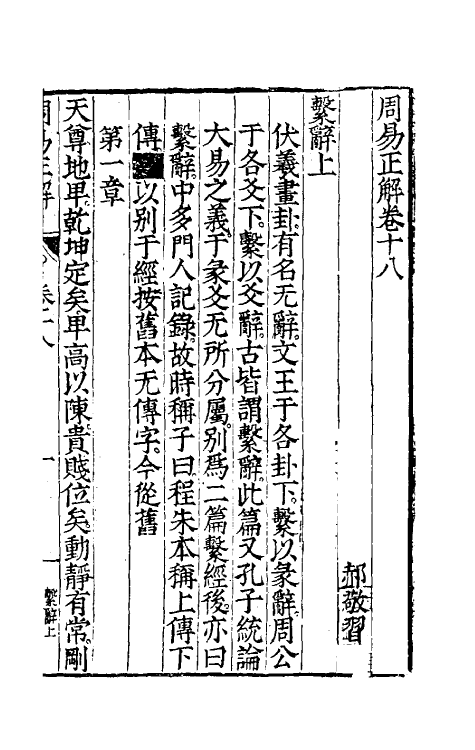 周易正解卷十八
郝敬習
繫辭上
伏羲畫卦有名无辭文王于各卦下繫以彖辭周公
于各爻下繫以爻辭古皆謂繫辭此篇又孔子統論
大易之義于彖爻无所分屬別爲二篇繫經後亦曰
繫辭中多門人記錄故時稱子曰程朱本稱上傳下
傳以别于經按舊本无傳字今從舊
第一章
天尊地卑乾坤定矣卑高以陳貴賤位矣動靜有常剛
周易正解 卷十八 一 繫辭上